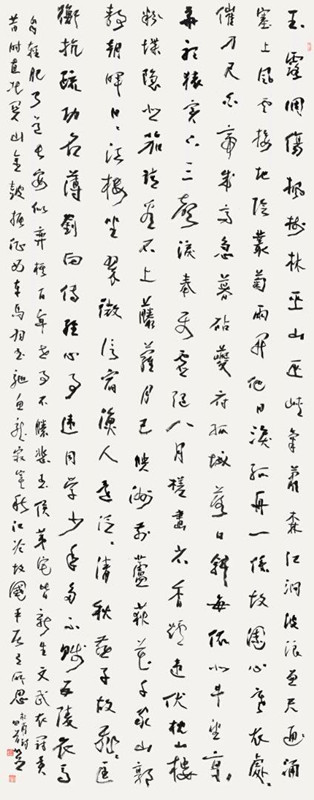 玉露凋傷楓樹林巫山巫峽氣蕭森江間波浪兼天湧
塞上風雲接地陰叢菊兩開他日淚孤舟一係故園心寒衣處處
催刀尺白帝城高急暮砧夔府孤城落日斜每依北斗望京
華聽猿實下三聲淚奉使虛隨八月槎畫省香爐違伏枕山樓
粉堞隱悲笳請看石上藤蘿月已映洲前蘆荻花千家山郭
靜朝暉日日江樓坐翠微信宿漁人還泛泛清秋燕子故飛飛匡
衡抗疏功名薄劉向傳經心事違同學少年多不賤五陵衣馬
自輕肥聞道長安似弈棋百年世事不勝悲王侯第宅皆新主文武衣冠異
昔時直北關山金鼓振征西車馬羽書馳魚龍寂寞秋江冷故國平居有所思